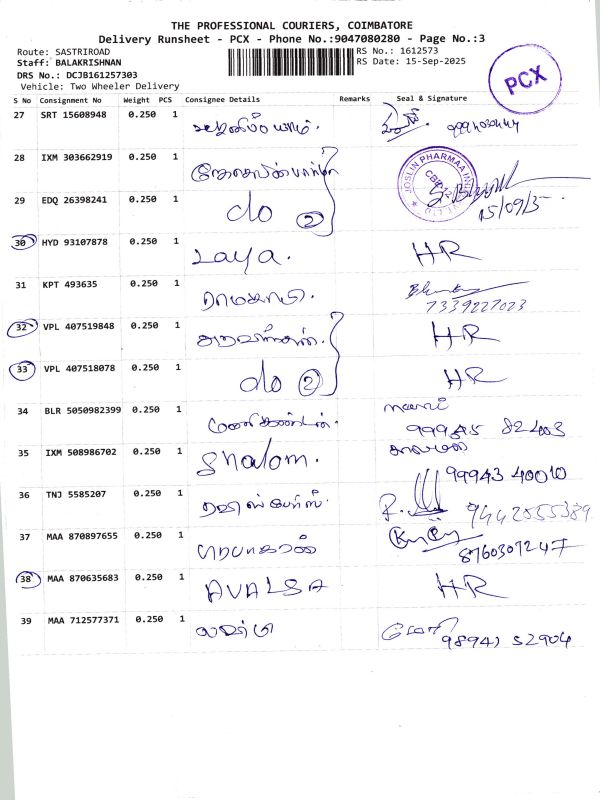 THE PROFESSIONAL COURIERS, COIMBATORE
Delivery Runsheet - PCX - Phone No.:9047080280 - Page No.:3
Route: SASTRIROAD
RS No.: 1612573
Staff: BALAKRISHNAN
RS Date: 15-Sep-2025
DRS No.: DCJB161257303
Vehicle: Two Wheeler Delivery
PCX
S No Consignment No Weight PCS Consignee Details Remarks Seal & Signature
27 SRT 15608948 0.250 1
28 IXM 303662919 0.250 1
JOSLIN PHARMAA
29 EDQ 26398241 0.250 1 do 2 15/09/
30 HYD 93107878 0.250 1 Laya. HR
31 KPT 493635 0.250 1 ராமசாமி. 7339227023
32 VPL 407519848 0.250 1 HR
33 VPL 407518078 0.250 1 do 2 HR
34 BLR 5050982399 0.250 1 மணிகண்டன்.
35 IXM 508986702 0.250 1 Shalom. 99943 40010
36 TNJ 5585207 0.250 1 9442055389
37 MAA 870897655 0.250 1 8760307247
38 MAA 870635683 0.250 1 AVALSA HR
39 MAA 712577371 0.250 1 98947 52904